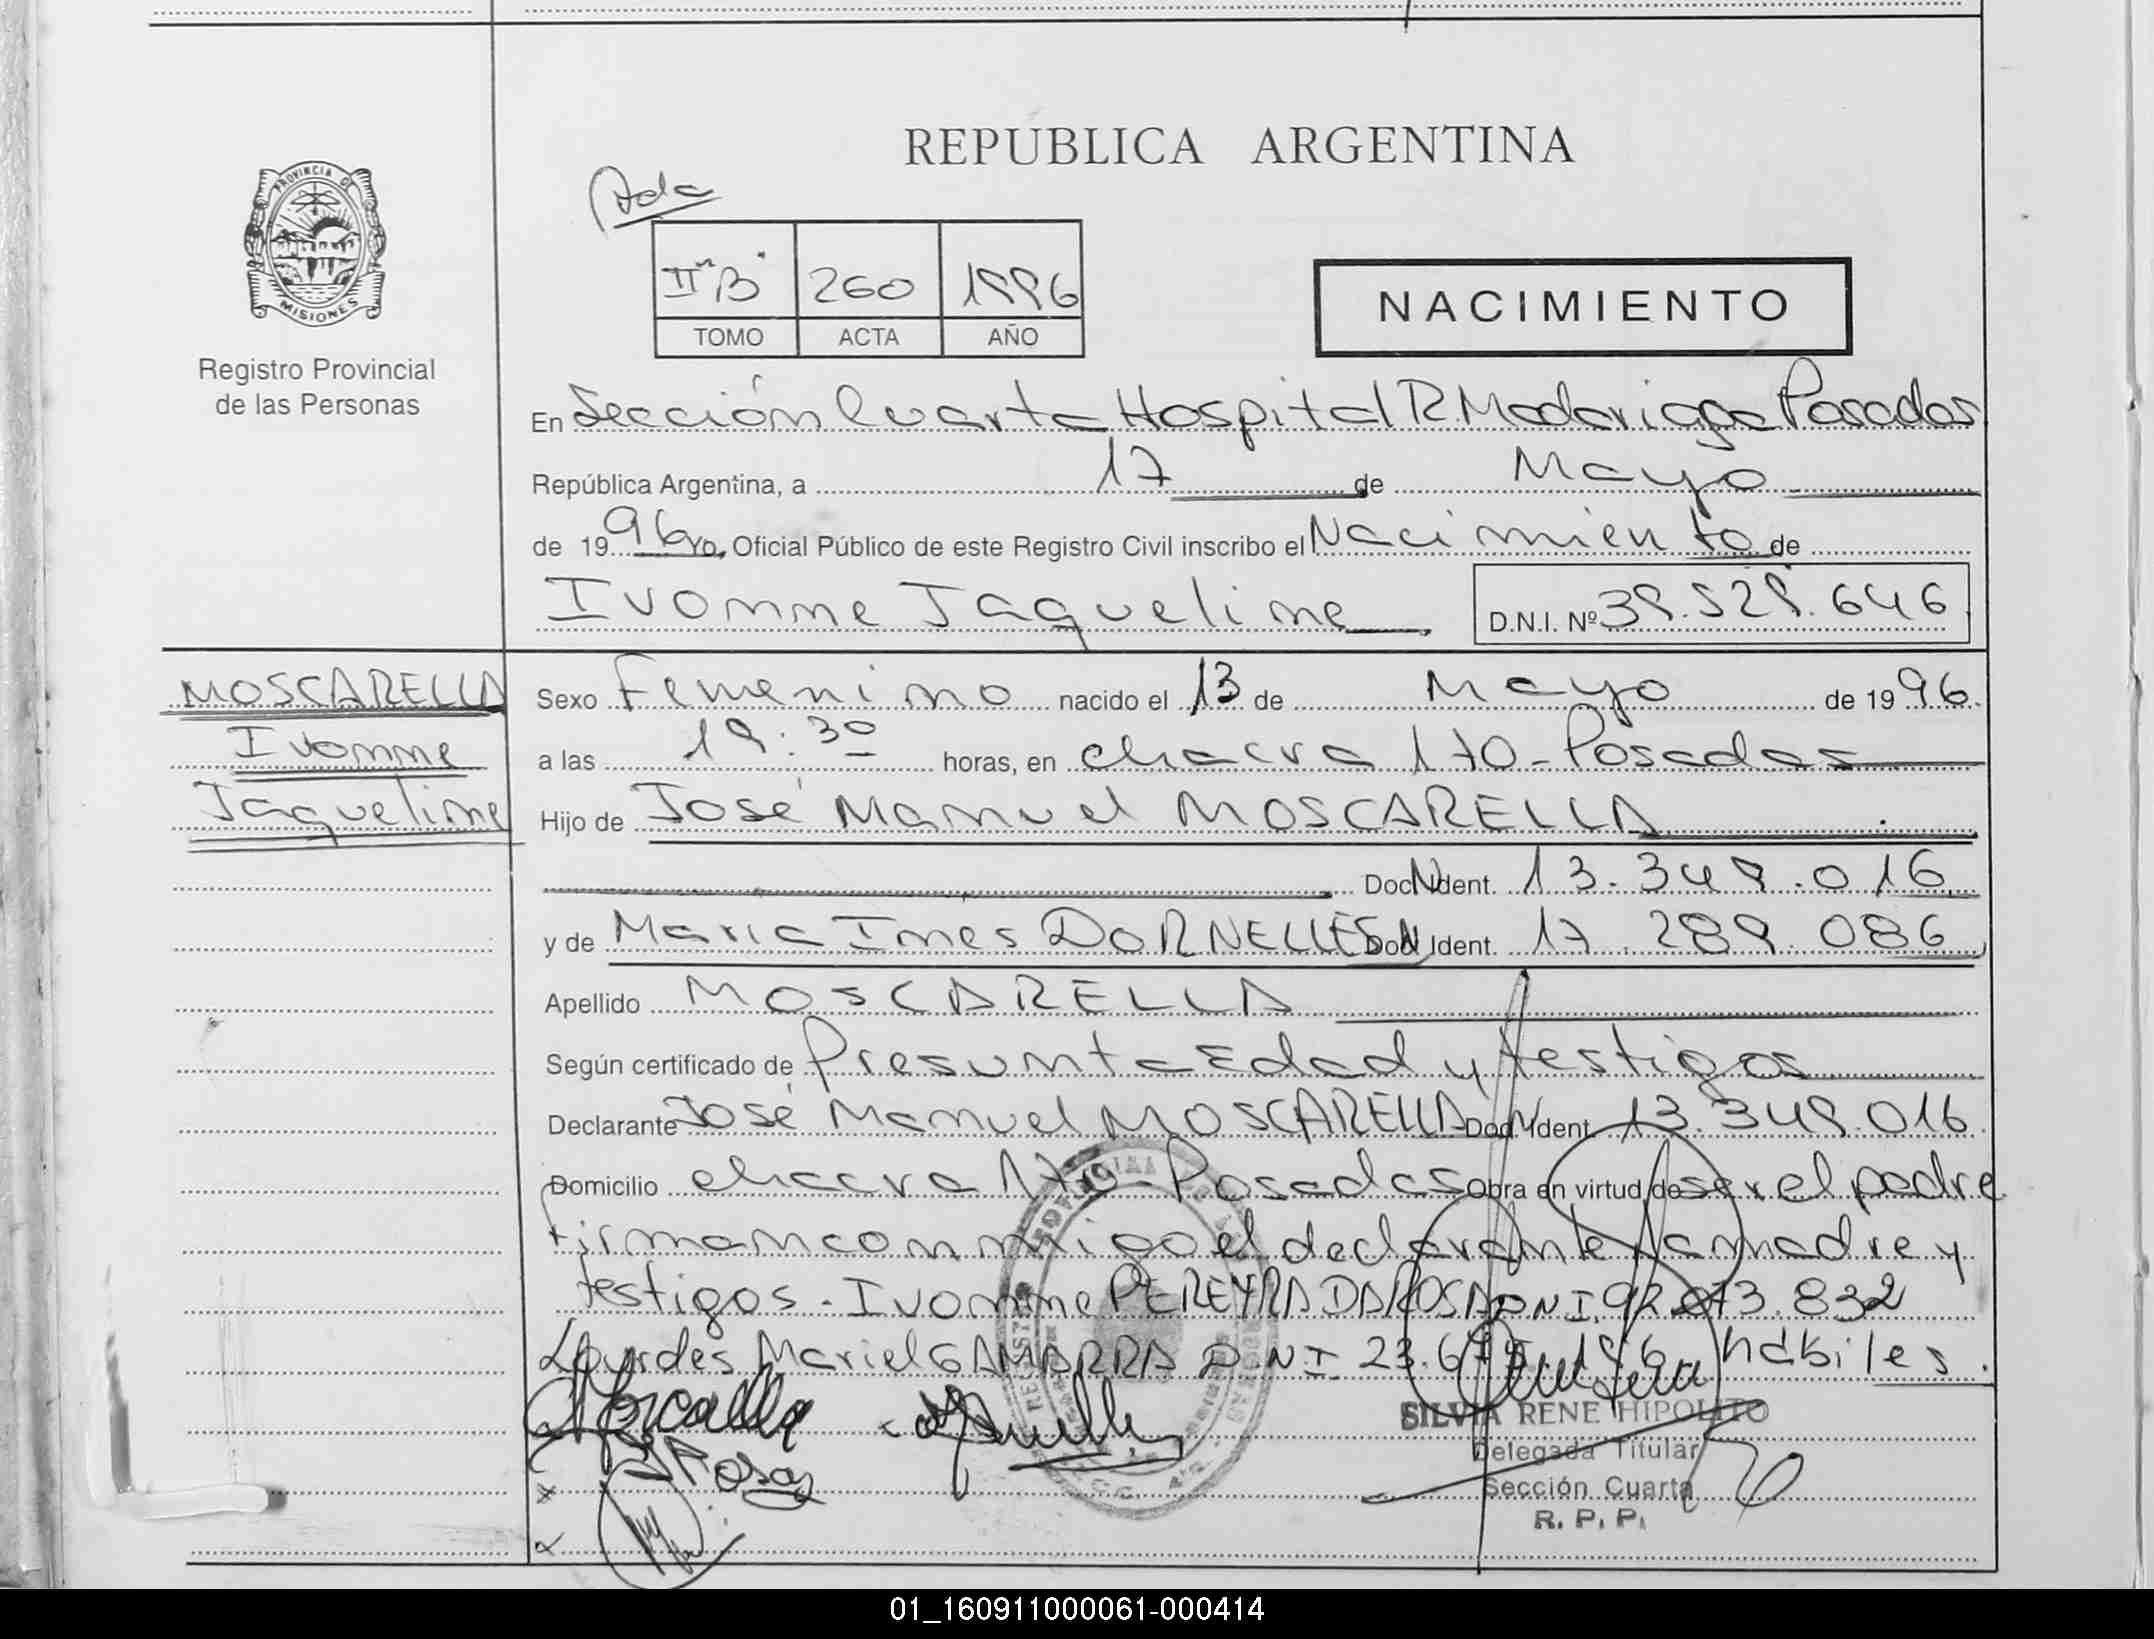 REPUBLICA ARGENTINA
PROVINCIA DE
MISIONES
Registro Provincial
de las Personas
II "B" 260 1996
TOMO ACTA AÑO
NACIMIENTO
En Sección Cuarta Hospital R. Madariaga Posadas
República Argentina, a 17 de Mayo
de 1996 yo, Oficial Público de este Registro Civil inscribo el Nacimiento de
Ivonne Jaqueline D.N.I. Nº 39.529.646
MOSCARELLA
Ivonne
Jaqueline
Sexo Femenino nacido el 13 de Mayo de 1996.
a las 19:30 horas, en chacra 170 - Posadas
Hijo de José Manuel MOSCARELLA
Doc. Ident. 13.349.016
y de María Ines DORNELLES Doc. Ident. 17.289.086
Apellido MOSCARELLA
Según certificado de Presunta Edad y testigos
Declarante José Manuel MOSCARELLA Doc. Ident. 13.349.016
Domicilio chacra 170 - Posadas Obra en virtud de ser el padre
firman conmigo el declarante la madre y
testigos - Ivonne PEREYRA DA ROSA D.N.I. 92.073.832
Lourdes Mariel GAMARRA D.N.I. 23.6 hábiles.
SILVIA RENE HIPOLITO
Delegada Titular
Sección Cuarta
R. P. P.
01_160911000061-000414